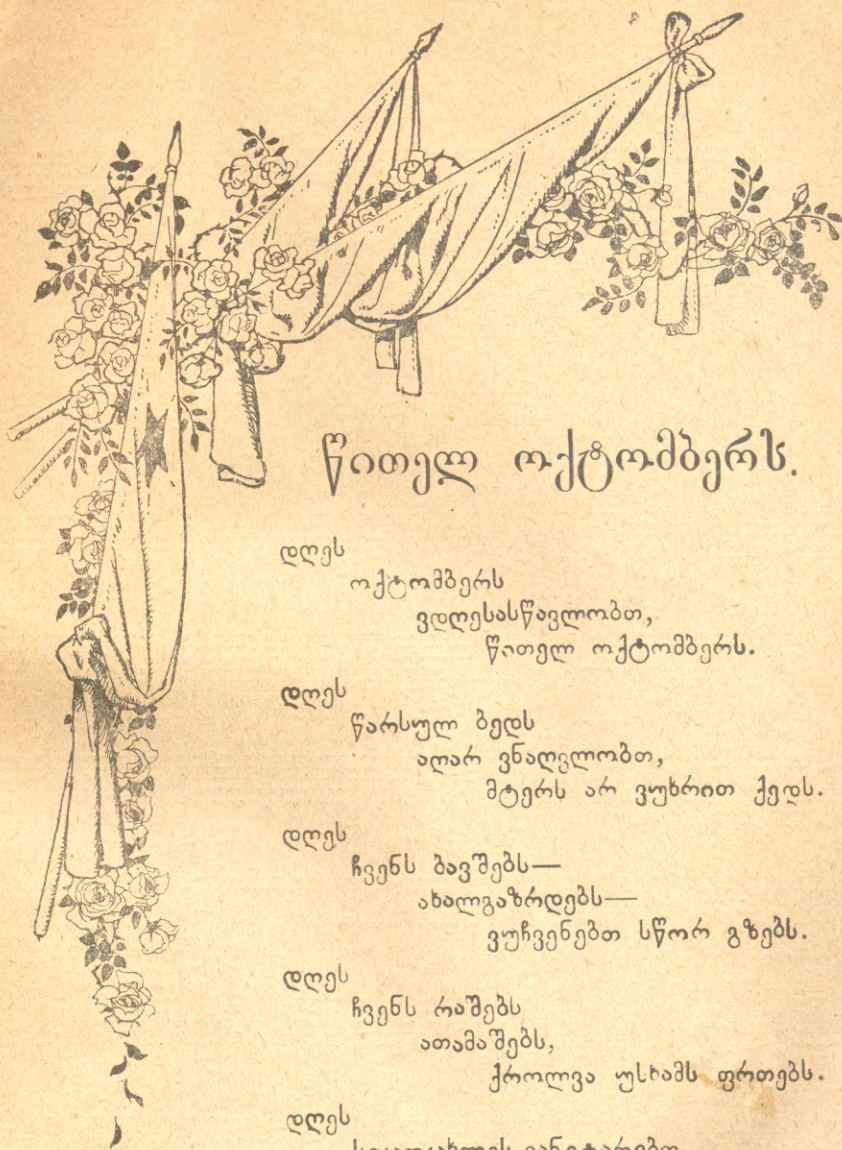 წითელ ოქტომბერს.
დღეს
ოქტომბერს
ვდღესასწავლობთ,
წითელ ოქტომბერს.
დღეს
წარსულ ბედს
აღარ ვნაღვლობთ,
მტერს არ ვუხრით ქედს.
დღეს
ჩვენს ბავშებს—
ახალგაზრდებს—
ვუჩვენებთ სწორ გზებს.
დღეს
ჩვენს რაშებს
ათამაშებს,
ქროლვა უსხამს ფრთებს.
დღეს